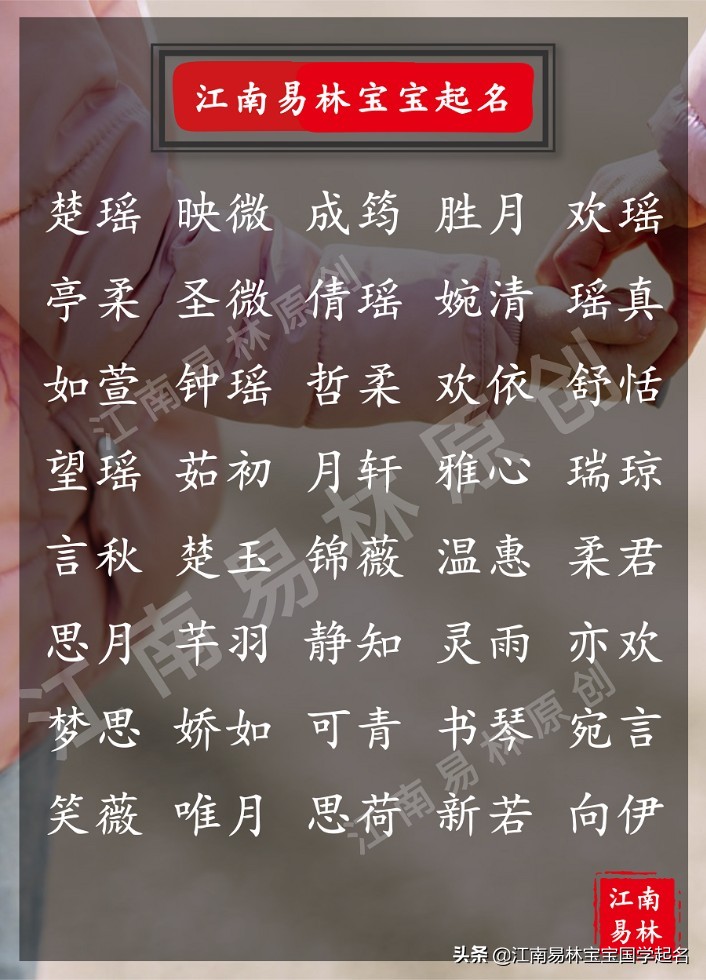 江南易林宝宝起名
楚瑶 映微 成筠 胜月 欢瑶
亭柔 圣微 倩瑶 婉清 瑶真
如萱 钟瑶 哲柔 欢依 舒恬
望瑶 茹初 月轩 雅心 瑞琼
言秋 楚玉 锦薇 温惠 柔君
思月 芊羽 静知 灵雨 亦欢
梦思 娇如 可青 书琴 宛言
笑薇 唯月 思荷 新若 向伊
江南易林原创
江南易林原创
江南易林原创
江南
易林
头条 @江南易林宝宝国学起名